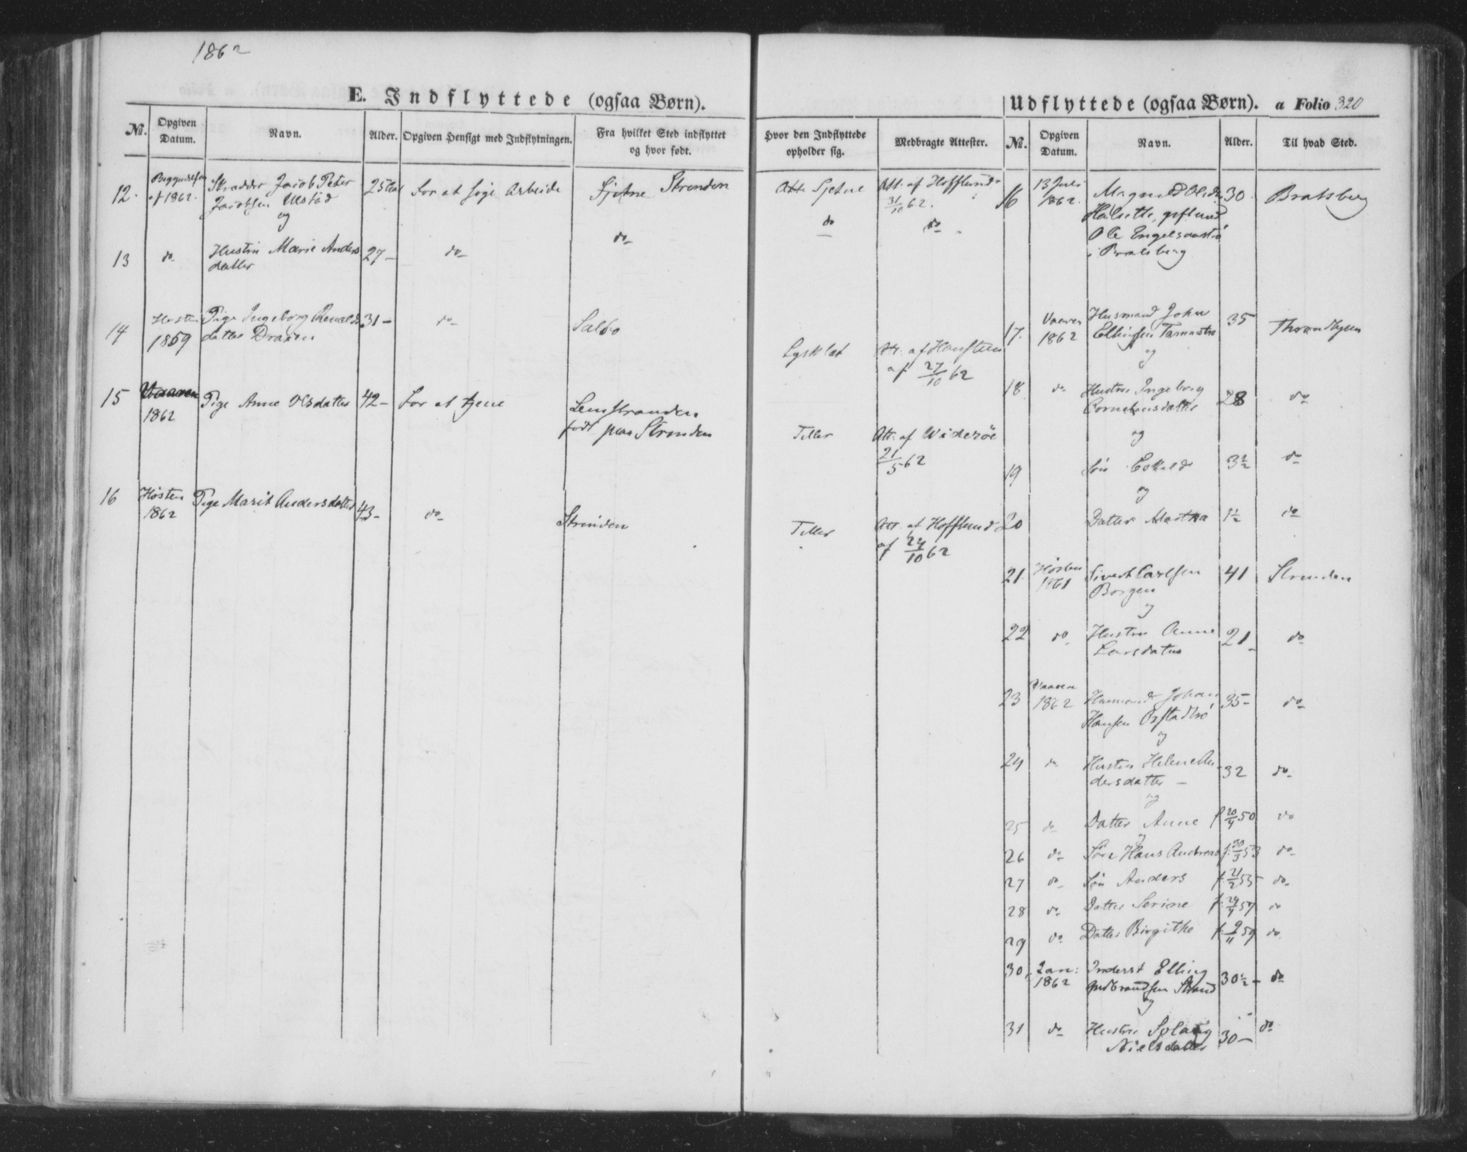 1862
E. Indflyttede (ogsaa Børn).
Udflyttede (ogsaa Børn). a Folio 320
No. Opgiven Datum. Navn. Alder. Opgiven Hensigt med Indflytningen. Fra hvilket Sted indflyttet og hvor født. Hvor den Indflyttede opholder sig. Medbragte Attester.
12. af 1862. Skrædder Jacob Peter Jacobsen Ulstad 25 for at søge Arbeide Sjetne Strinden Sjetne Att. af Hofflund 31/10 62.
og
13 do Hustru Marie Andersdatter 27 do do do do
14 Høsten 1859 Pige Ingeborg datter Draxen 31 do Salbo Lysklet Att. af 27/10 62
15 Vaaren 1862 Pige Anne Olsdatter 42 for at tjene født paa Strinden Tiller Att. af Widerøe 21/5 62
16 Høsten 1862 Pige Marit Andersdatter 43 do Strinden Tiller Att. af Hofflund af 24/10 62
No. Opgiven Datum. Navn. Alder. Til hvad Sted.
16 13 Juli 1862. Halsetle, gift med Ole i Bratsberg 30 Bratsberg
17. Vaaren 1862 Husmand John Ellingsen 35 Throndhjem
og
18 do Hustru Ingeborg Corneliusdatter 28 do
og
19 Søn 3½ do
og
20 Datter Martha 1½ do
21 Høsten 1861 Sivert Carlsen Borgen 41 Strinden
og
22 do Hustru Anne Larsdatter 21 do
23 Vaaren 1862 Husmand Johan Hansen 35 do
og
24 do Hustru Helene Andersdatter 32 do
og
25 do Datter Anne f. 20/4 50 do
og
26 do Søn Hans Andreas f. 30/3 53 do
27 do Søn Anders f. 21/2 55 do
28 do Datter Serine f. 57 do
29 do Datter Birgithe f. 9/11 59 do
30, Jan: 1862 Inderst Elling Strand 30½ do
og
31 do Hustru Solaug Nielsdatter 30 do